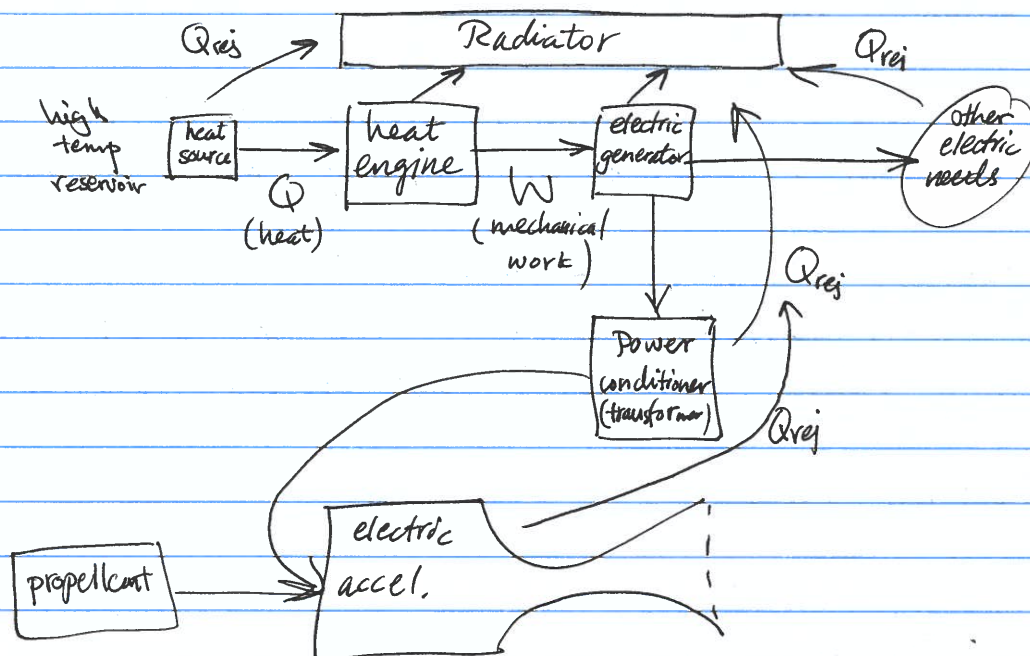 Radiator
Qrej
Qrej
high
temp
reservoir
heat
source
heat
engine
electric
generator
other
electric
needs
Q
(heat)
W
(mechanical
work)
Qrej
Power
conditioner
(transformer)
Qrej
electric
accel.
propellant